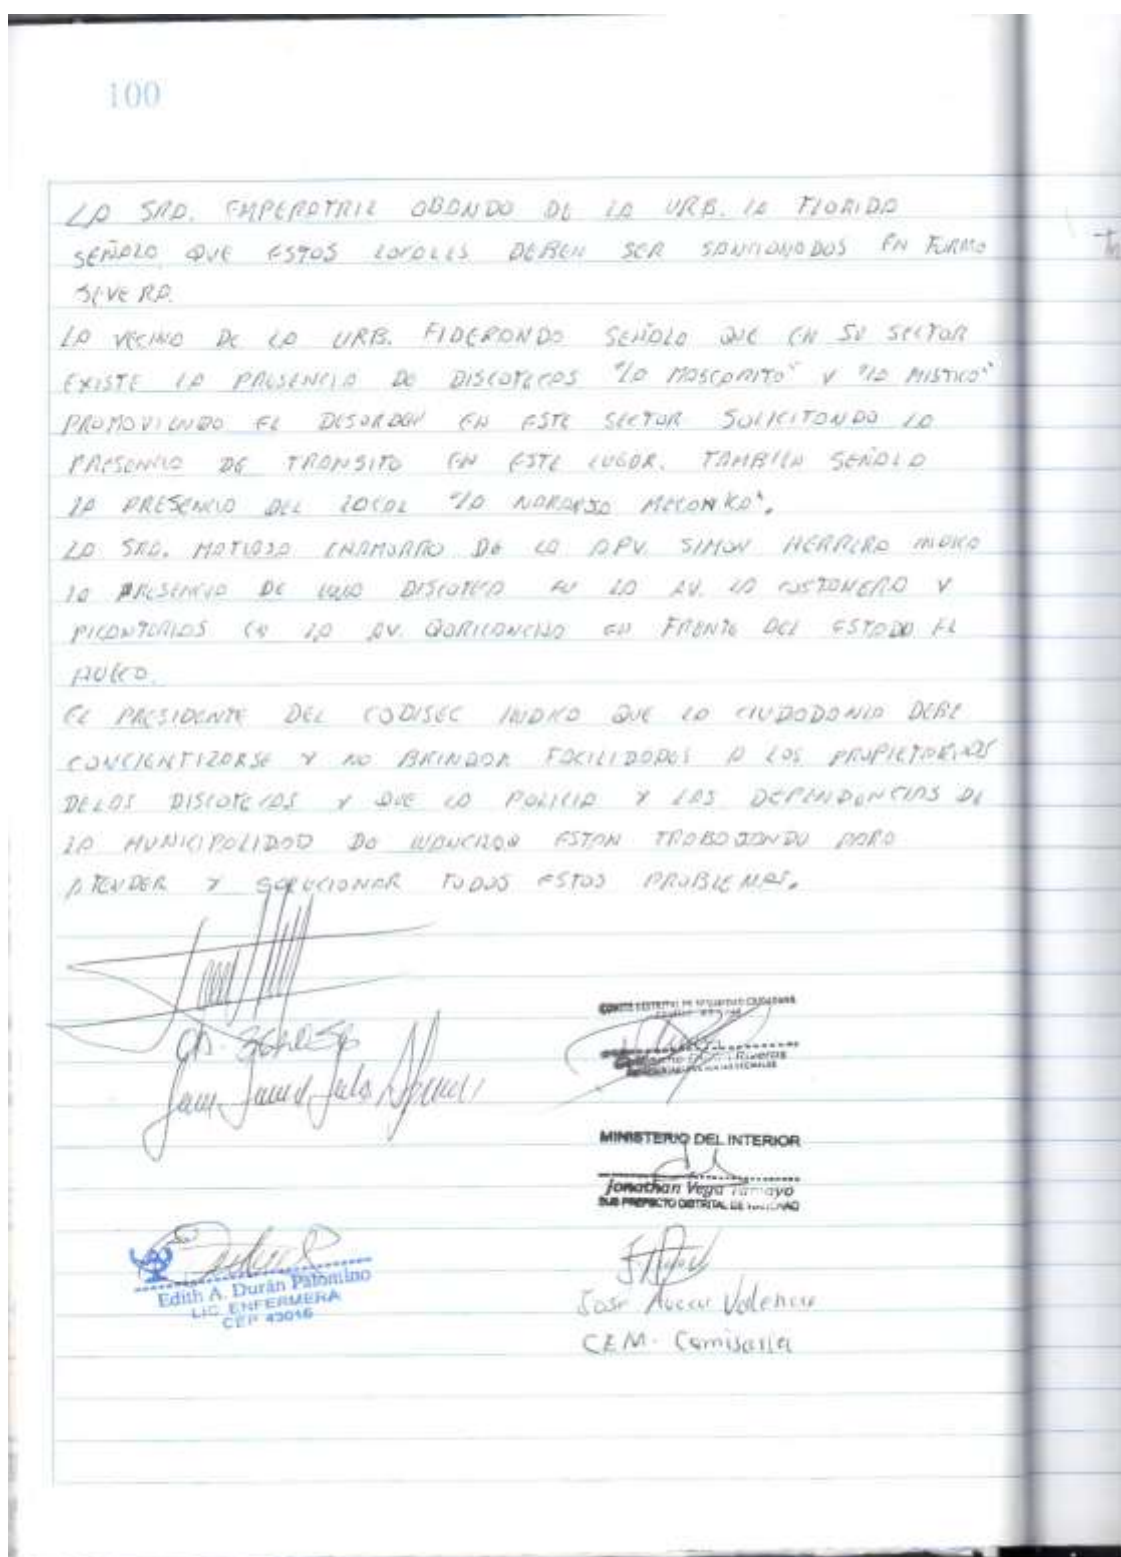 100
LA SRA. EMPERATRIZ OBANDO DE LA URB. LA FLORIDA
SEÑALO QUE ESTOS LOCALES DEBEN SER SANCIONADOS EN FORMA
SEVERA.
LA VECINA DE LA URB. FIDERANDA SEÑALO QUE EN SU SECTOR
EXISTE LA PRESENCIA DE DISCOTECAS "LA MASCARITA" Y "LA MISTICA"
PROMOVIENDO EL DESORDEN EN ESTE SECTOR SOLICITANDO LA
PRESENCIA DE TRANSITO EN ESTE LUGAR. TAMBIEN SEÑALO
LA PRESENCIA DEL LOCAL "LA NARANJA MECANICA".
LA SRA. CHAMORRO DE LA APV. SIMON HERRERA INDICO
LA PRESENCIA DE UNA DISCOTECA EN LA AV. LA COSTANERA Y
PICANTERIAS EN LA AV. QORICANCHA EN FRENTE DEL ESTADO EL
EL PRESIDENTE DEL CODISEC INDICO QUE LA CIUDADANIA DEBE
CONCIENTIZARSE Y NO BRINDAR FACILIDADES A LOS PROPIETARIOS
DE LAS DISCOTECAS Y QUE LA POLICIA Y LAS DEPENDENCIAS DE
LA MUNICIPALIDAD DE WANCHAQ ESTAN TRABAJANDO PARA
ATENDER Y SOLUCIONAR TODOS ESTOS PROBLEMAS.
COMITE DISTRITAL DE SEGURIDAD CIUDADANA
Riveros
JUNTAS VECINALES
MINISTERIO DEL INTERIOR
Jonathan Vega Tamayo
SUB PREFECTO DISTRITAL DE WANCHAQ
Edith A. Durán Palomino
LIC. ENFERMERA
CEP 43016
Jose Valencia
CEM - Comisaria